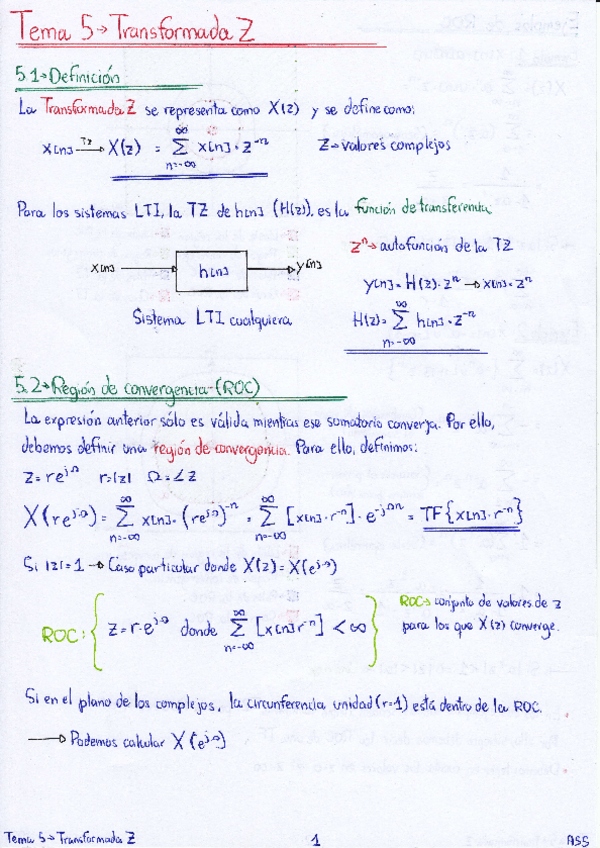 Tema 5→Transformada Z
5.1→Definición
La Transformada Z se representa como X(z) y se define como:
x[n] —TZ→ X(z) = ∑_{n=-∞}^{∞} x[n]·z^{-n}   Z→valores complejos
Para los sistemas LTI, la TZ de h[n] (H(z)), es la función de transferencia
z^n→autofunción de la TZ
x[n] → h[n] → y[n]
y[n]=H(z)·z^n → x[n]=z^n
Sistema LTI cualquiera
H(z)=∑_{n=-∞}^{∞} h[n]·z^{-n}
5.2→Región de convergencia-(ROC)
La expresión anterior sólo es válida mientras ese sumatorio converja. Por ello,
debemos definir una región de convergencia. Para ello, definimos:
z=re^{jΩ}   r=|z|   Ω=∠z
X(re^{jΩ})=∑_{n=-∞}^{∞} x[n]·(re^{jΩ})^{-n}=∑_{n=-∞}^{∞} [x[n]·r^{-n}]·e^{-jΩn}=TF{x[n]·r^{-n}}
Si |z|=1→Caso particular donde X(z)=X(e^{jΩ})
ROC: { z=r·e^{jΩ} donde ∑_{n=-∞}^{∞} [x[n]r^{-n}] < ∞ }
ROC→conjunto de valores de z
para los que X(z) converge.
Si en el plano de los complejos, la circunferencia unidad (r=1) está dentro de la ROC.
→ Podemos calcular X(e^{jΩ})
Tema 5→Transformada Z   1   ASS